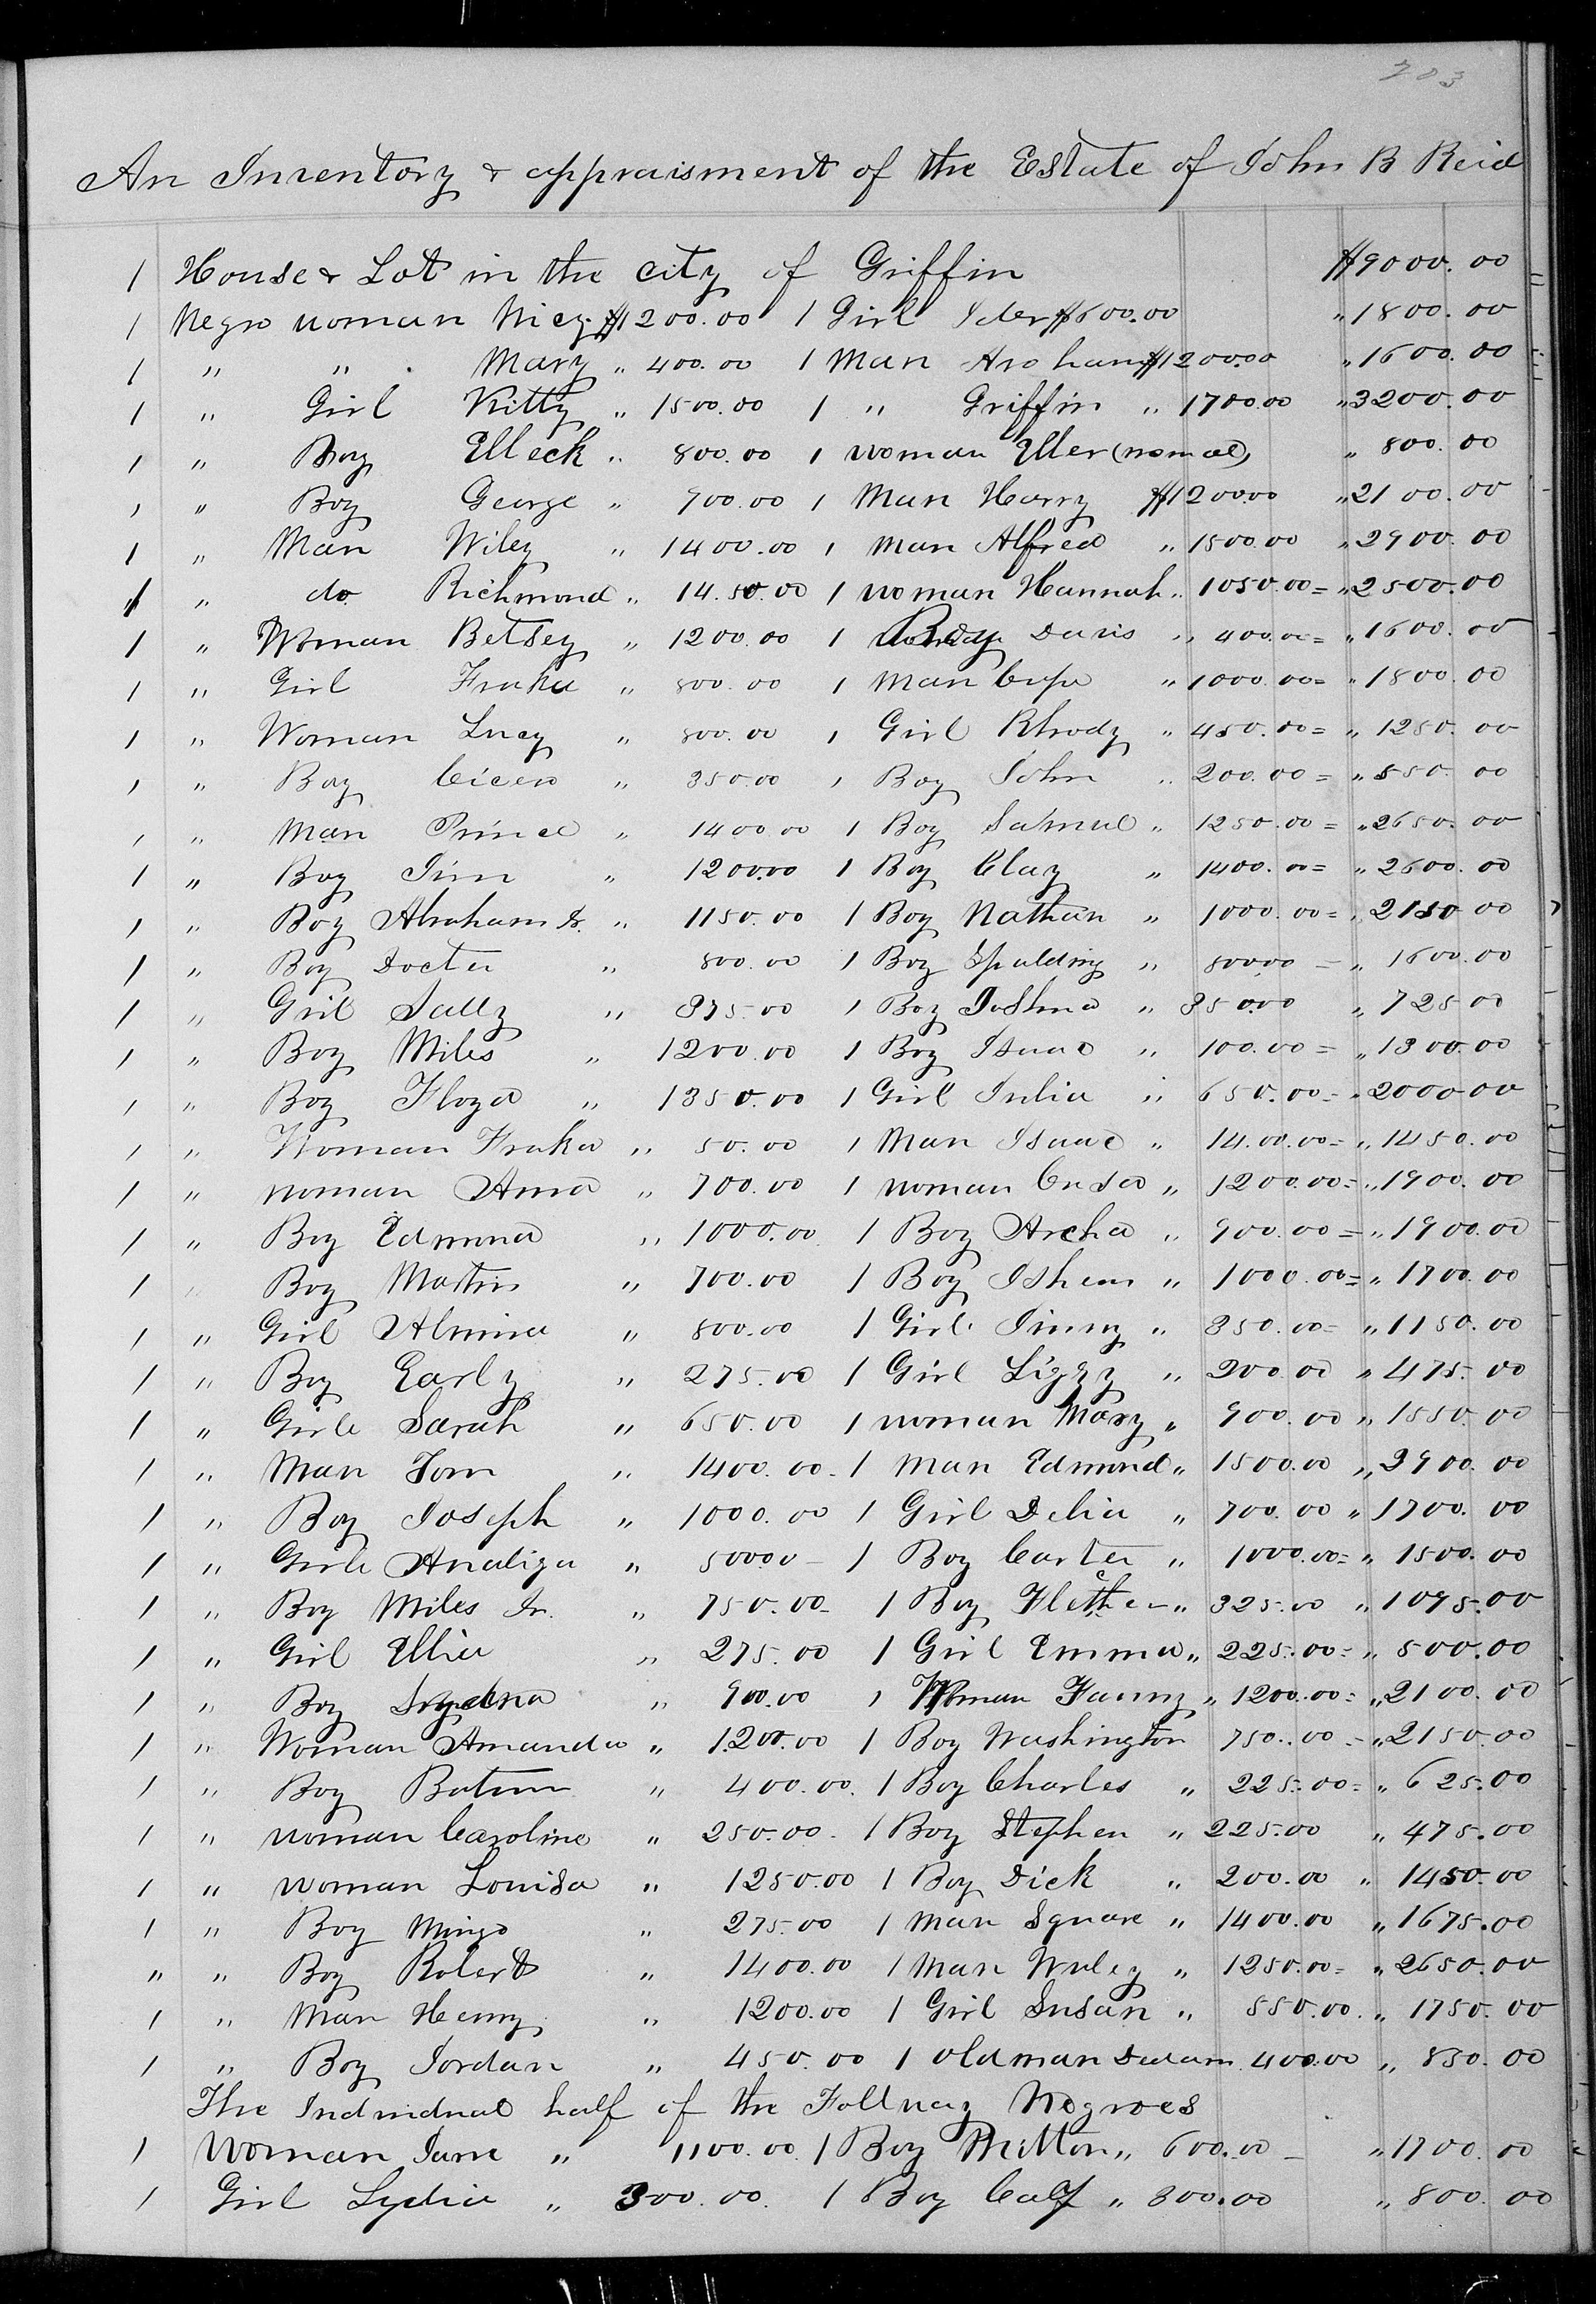 203
An Inventory & appraisment of the Estate of John B Reid
1 House & Lot in the city of Griffin $9000.00
1 Negro woman Nicy $1200.00 1 Girl Ider $600.00 " 1800.00
1 " " Mary " 400.00 1 Man Abraham $1200.00 " 1600.00
1 " Girl Kitty " 1500.00 1 " Griffin " 1700.00 " 3200.00
1 " Boy Elleck " 800.00 1 woman Eller " 800.00
1 " Boy George " 900.00 1 Man Harry $1200.00 " 2100.00
1 " Man Wiley " 1400.00 1 man Alfred " 1500.00 " 2900.00
1 " do Richmond " 14.50.00 1 woman Hannah " 1050.00 = " 2500.00
1 " Woman Betsey " 1200.00 1 Boy Davis " 400.00 = " 1600.00
1 " Girl " 800.00 1 Man " 1000.00 = " 1800.00
1 " Woman Lucy " 800.00 1 Girl Rhody " 450.00 = " 1250.00
1 " Boy Cicero " 350.00 1 Boy John " 200.00 = " 550.00
1 " Man Prince " 1400.00 1 Boy Samuel " 1250.00 = " 2650.00
1 " Boy Jim " 1200.00 1 Boy Clay " 1400.00 = " 2600.00
1 " Boy Abraham Jr. " 1150.00 1 Boy Nathan " 1000.00 = " 2150.00
1 " Boy Docter " 800.00 1 Boy Spalding " 800.00 = " 1600.00
1 " Girl Sally " 375.00 1 Boy Joshua " 350.00 " 725.00
1 " Boy Miles " 1200.00 1 Boy Isaac " 100.00 = " 1300.00
1 " Boy Floyd " 1350.00 1 Girl Julia " 650.00 = " 2000.00
1 " Woman " 50.00 1 Man Isaac " 14.00.00 = " 1450.00
1 " woman Anna " 700.00 1 woman " 1200.00 = " 1900.00
1 " Boy Edmond " 1000.00 1 Boy Archa " 900.00 = " 1900.00
1 " Boy Martin " 700.00 1 Boy Isham " 1000.00 = " 1700.00
1 " Girl Almina " 800.00 1 Girl Jinny " 350.00 = " 1150.00
1 " Boy Early " 275.00 1 Girl Lizzy " 200.00 " 475.00
1 " Girle Sarah " 650.00 1 woman Mary " 900.00 " 1550.00
1 " Man Tom " 1400.00 - 1 Man Edmond " 1500.00 " 2900.00
1 " Boy Joseph " 1000.00 1 Girl Delia " 700.00 " 1700.00
1 " Girle Analiza " 500.00 - 1 Boy Carter " 1000.00 = " 1500.00
1 " Boy Miles Jr. " 750.00 - 1 Boy Fletcher " 325.00 " 1075.00
1 " Girl Ellia " 275.00 1 Girl Emma " 225.00 = " 500.00
1 " Boy " 900.00 1 Woman Fanny " 1200.00 = " 2100.00
1 " Woman Amanda " 1200.00 1 Boy Washington 750.00 - " 2150.00
1 " Boy " 400.00 1 Boy Charles " 225.00 = " 625.00
1 " woman Caroline " 250.00 1 Boy Stephen " 225.00 " 475.00
1 " woman Louisa " 1250.00 1 Boy Dick " 200.00 " 1450.00
1 " Boy Mingo " 275.00 1 Man Square " 1400.00 " 1675.00
" " Boy Robert " 1400.00 1 Man " 1250.00 = " 2650.00
1 " Man Henry " 1200.00 1 Girl Susan " 550.00 " 1750.00
1 " Boy Jordan " 450.00 1 old man 400.00 " 850.00
The Individual half of the Negroes
1 Woman Jane " 1100.00 1 Boy Milton " 600.00 - " 1700.00
1 Girl Lydia " 300.00 1 Boy " 300.00 " 800.00